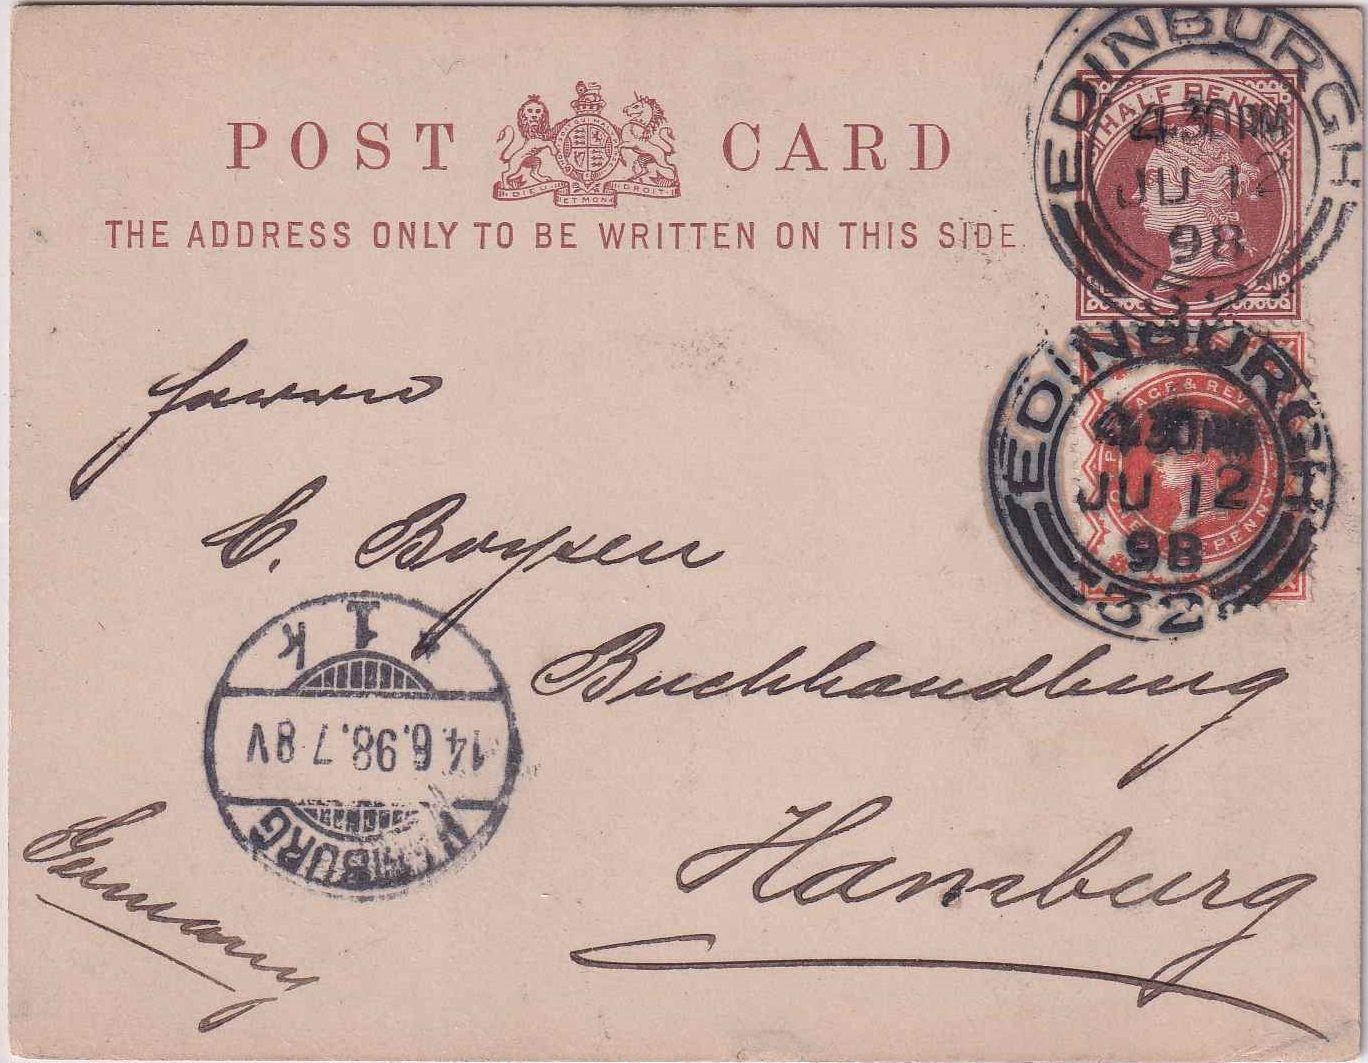 POST CARD
DIEU ET MON DROIT
THE ADDRESS ONLY TO BE WRITTEN ON THIS SIDE.
HALF PEN
EDINBURGH
4.30 PM
JU 12
98
EDINBURGH
4.30 PM
JU 12
98
32
Herrn
C. Boysen
Buchhandlung
Hamburg
Germany
HAMBURG
14.6.98.7 8V
1 k